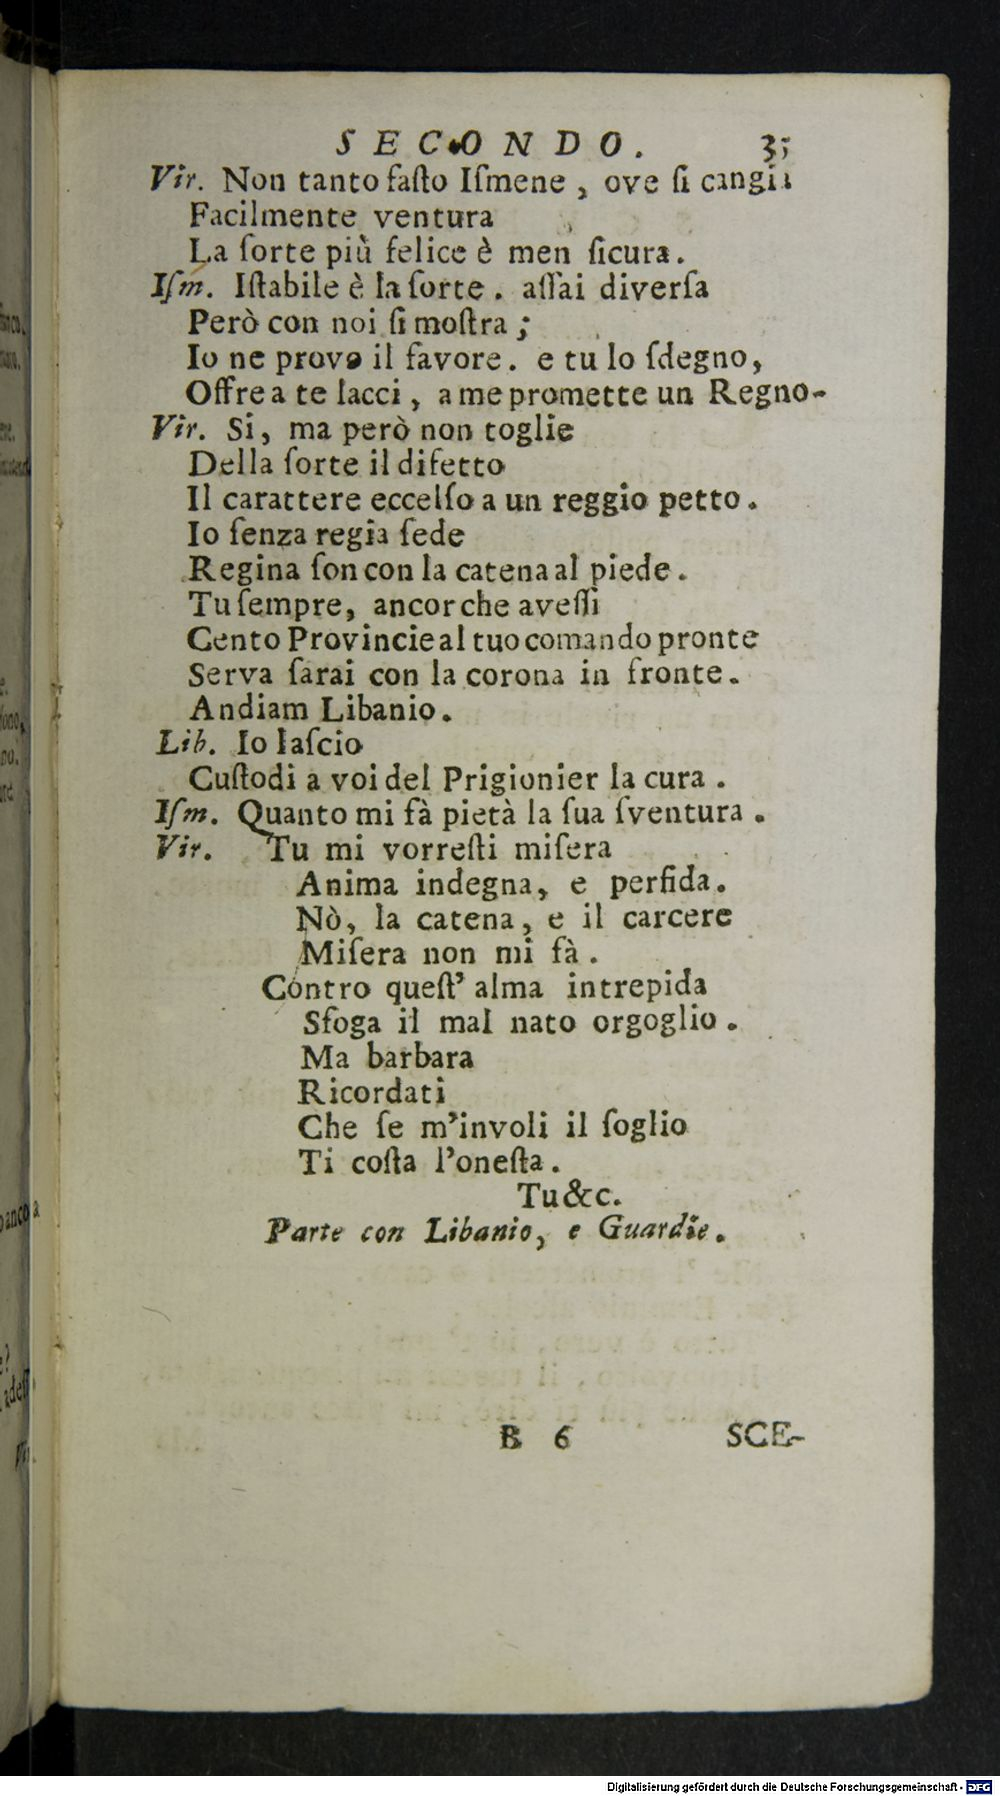 SECONDO. 35
Vir. Non tanto faſto Iſmene, ove ſi cangia
Facilmente ventura
La ſorte più felice è men ſicura.
Iſm. Iſtabile è la ſorte. aſſai diverſa
Però con noi ſi moſtra;
Io ne provo il favore. e tu lo ſdegno,
Offre a te lacci, a me promette un Regno-
Vir. Si, ma però non toglie
Della ſorte il difetto
Il carattere eccelſo a un reggio petto.
Io ſenza regia ſede
Regina ſon con la catena al piede.
Tu ſempre, ancorche aveſſi
Cento Provincie al tuo comando pronte
Serva ſarai con la corona in fronte.
Andiam Libanio.
Lib. Io laſcio
Cuſtodi a voi del Prigionier la cura.
Iſm. Quanto mi fà pietà la ſua ſventura.
Vir. Tu mi vorreſti miſera
Anima indegna, e perfida.
Nò, la catena, e il carcere
Miſera non mi fà.
Contro queſt' alma intrepida
Sfoga il mal nato orgoglio.
Ma barbara
Ricordati
Che ſe m'involi il ſoglio
Ti coſta l'oneſta.
Tu &c.
Parte con Libanio, e Guardie.
B 6 SCE-
Digitalisierung gefördert durch die Deutsche Forschungsgemeinschaft - DFG